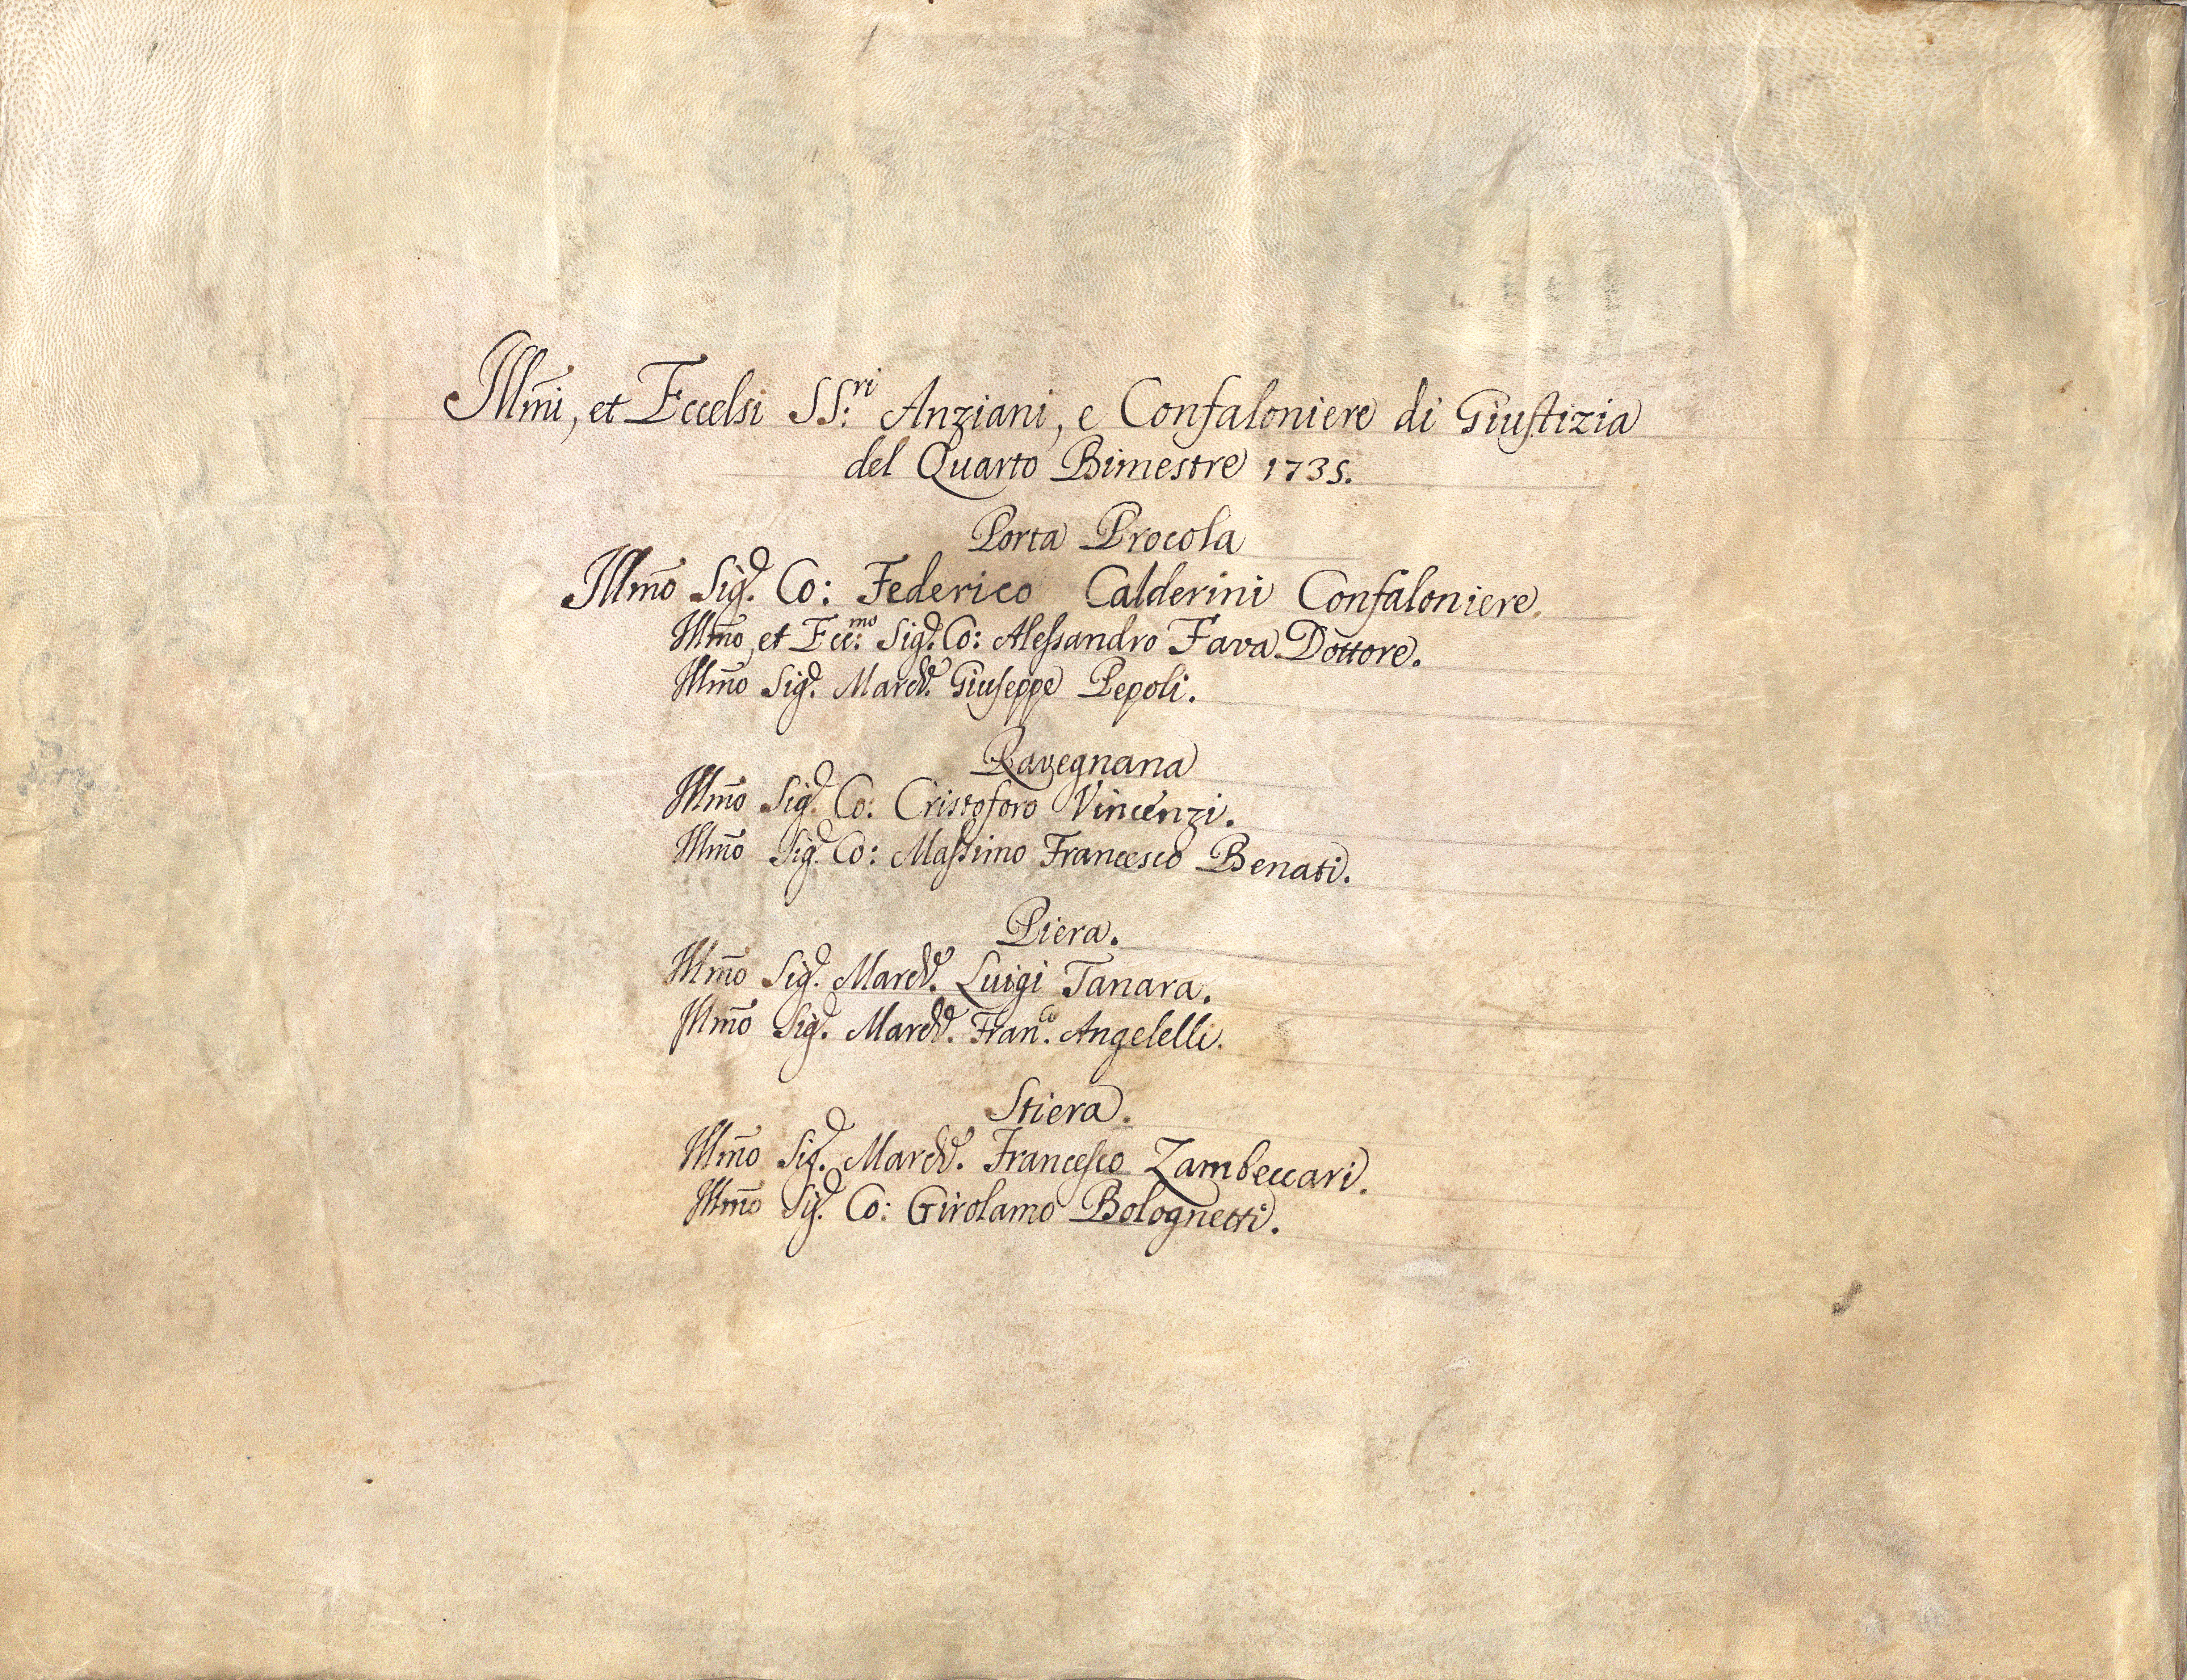 Illm̃i, et Eccelsi SS:ri Anziani, e Confaloniere di Giustizia
del Quarto Bimestre 1735.
Porta Procola
Illm̃o Sigr. Co: Federico Calderini Confaloniere.
Illm̃o, et Ecc:mo Sigr. Co: Alessandro Fava Dottore.
Illm̃o Sigr. March. Giuseppe Pepoli.
Ravegnana
Illm̃o Sigr. Co: Cristoforo Vincenzi.
Illm̃o Sigr. Co: Massimo Francesco Benati.
Piera.
Illm̃o Sigr. March. Luigi Tanara.
Illm̃o Sigr. March. Fran.co Angelelli.
Stiera.
Illm̃o Sigr. March. Francesco Zambeccari.
Illm̃o Sigr. Co: Girolamo Bolognetti.